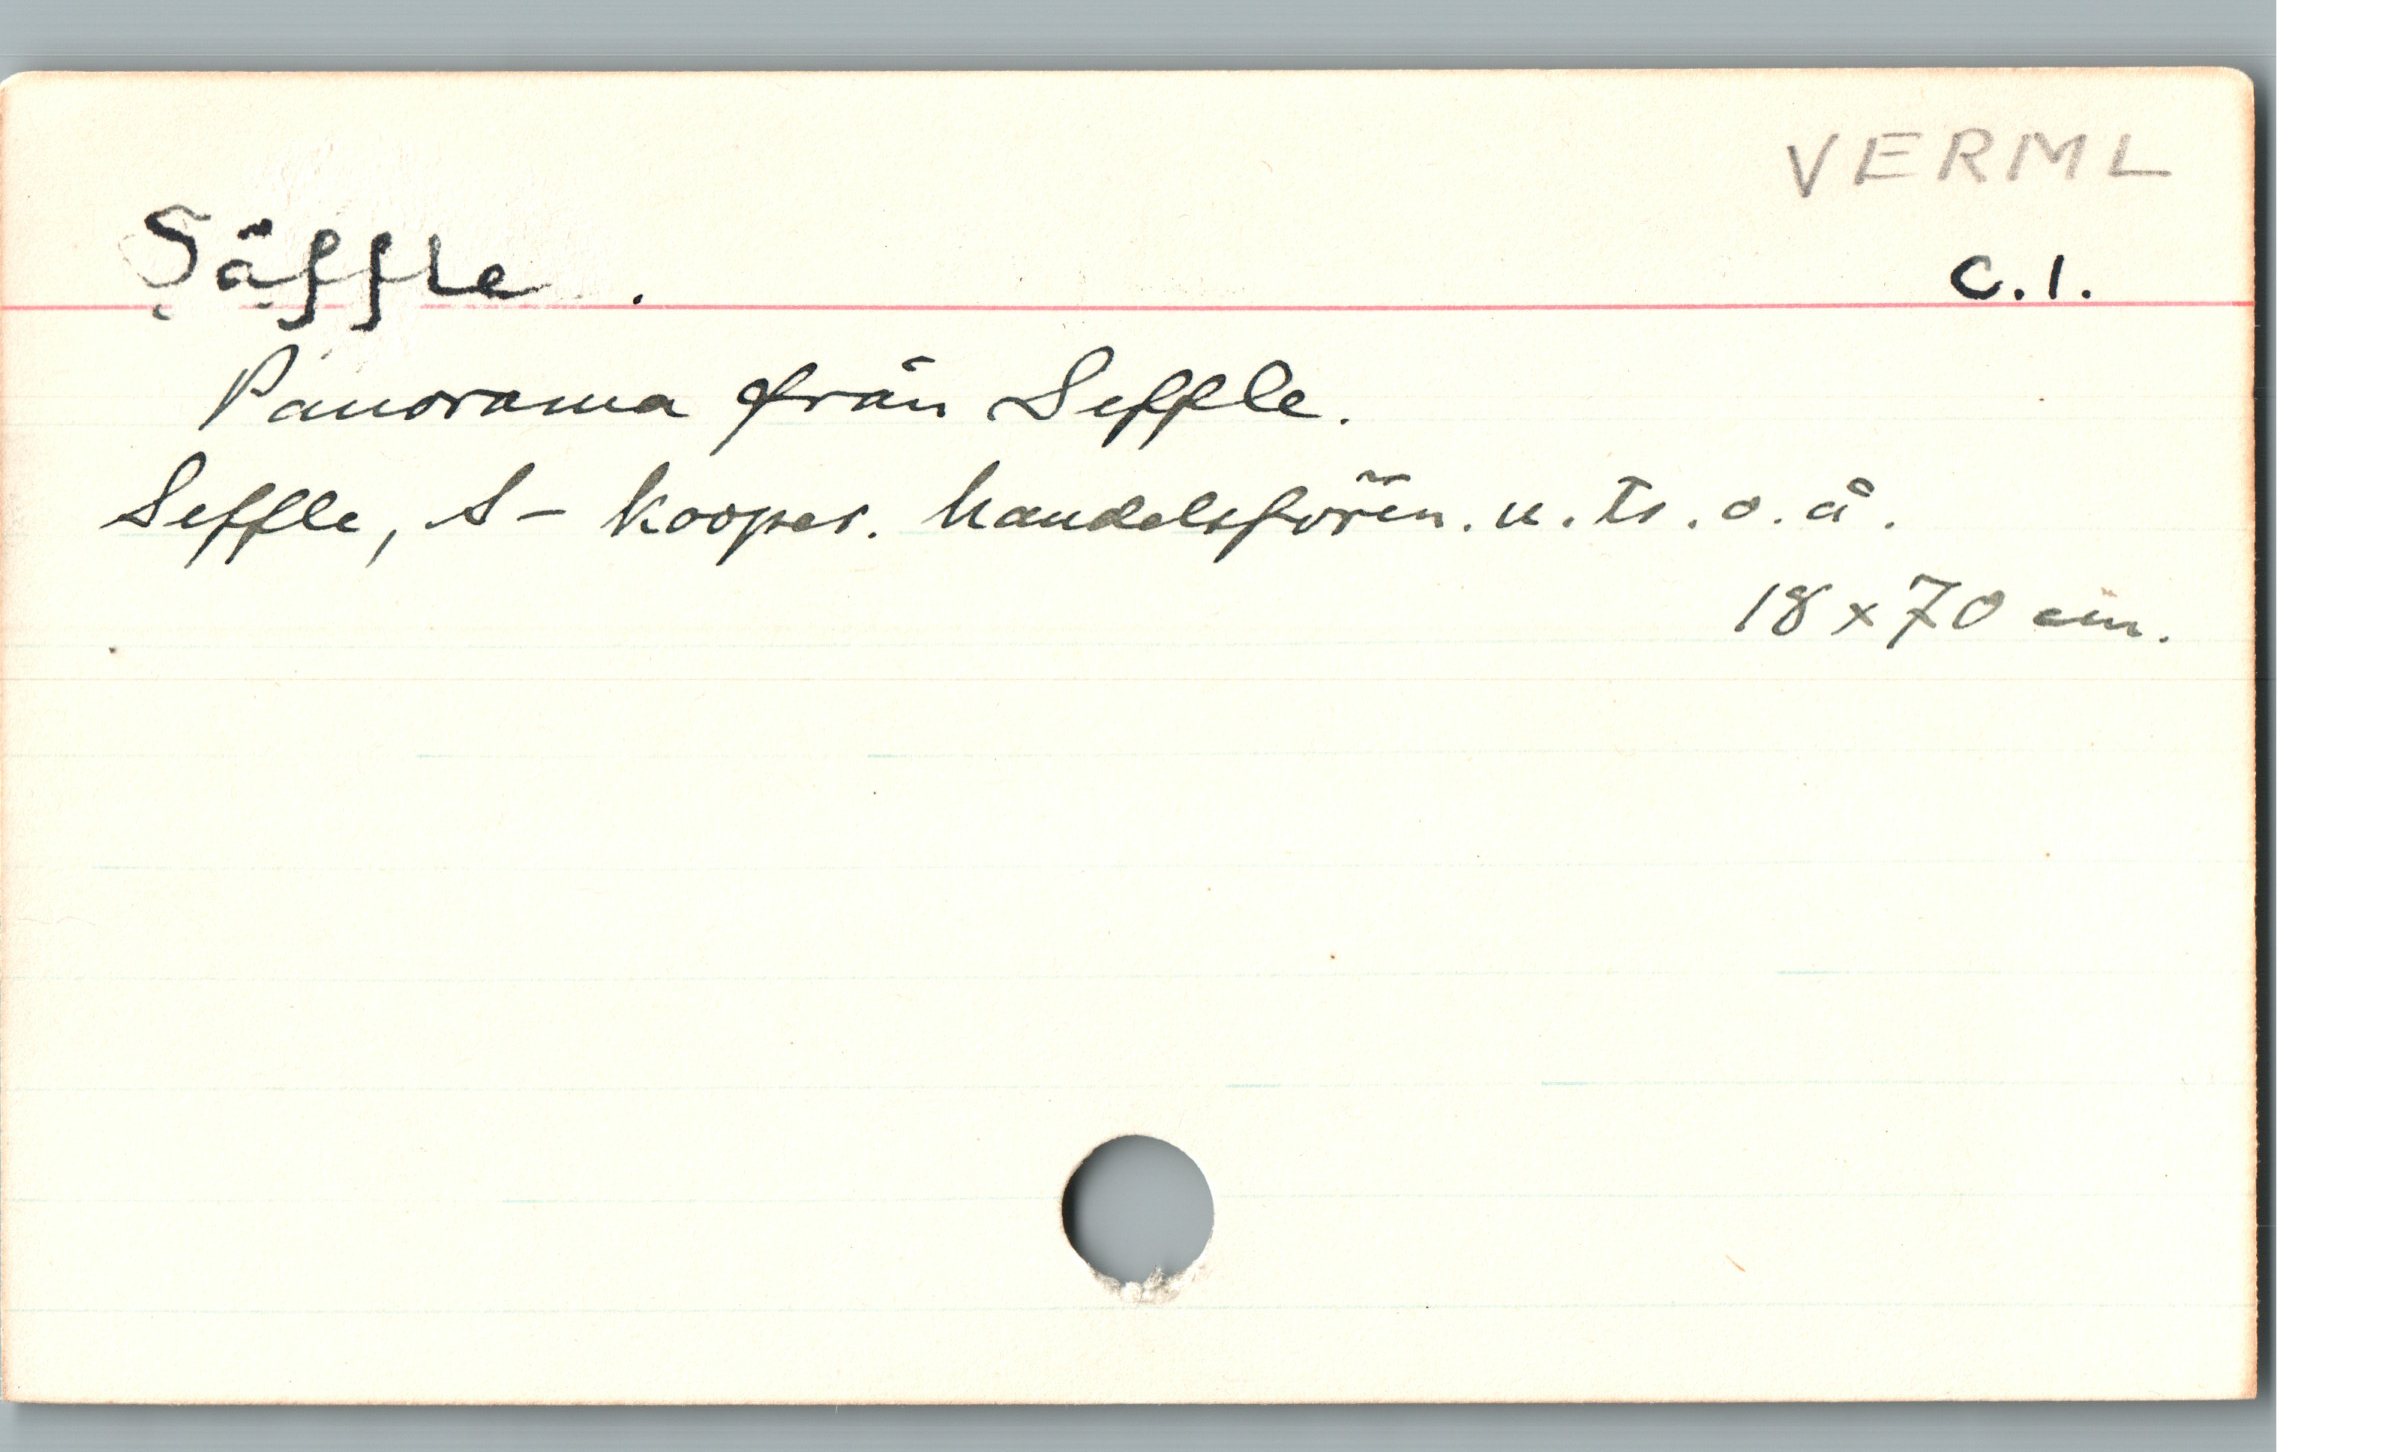 VERML
Säffle. C.1.
Panorama från Seffle.
Seffle, S- kooper. handelsfören. u. tr. o. å.
18 x 70 cm.